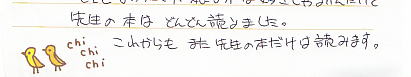 先生の本は どんどん読みました。
これからも また 先生の本だけは 読みます。
chi
chi
chi